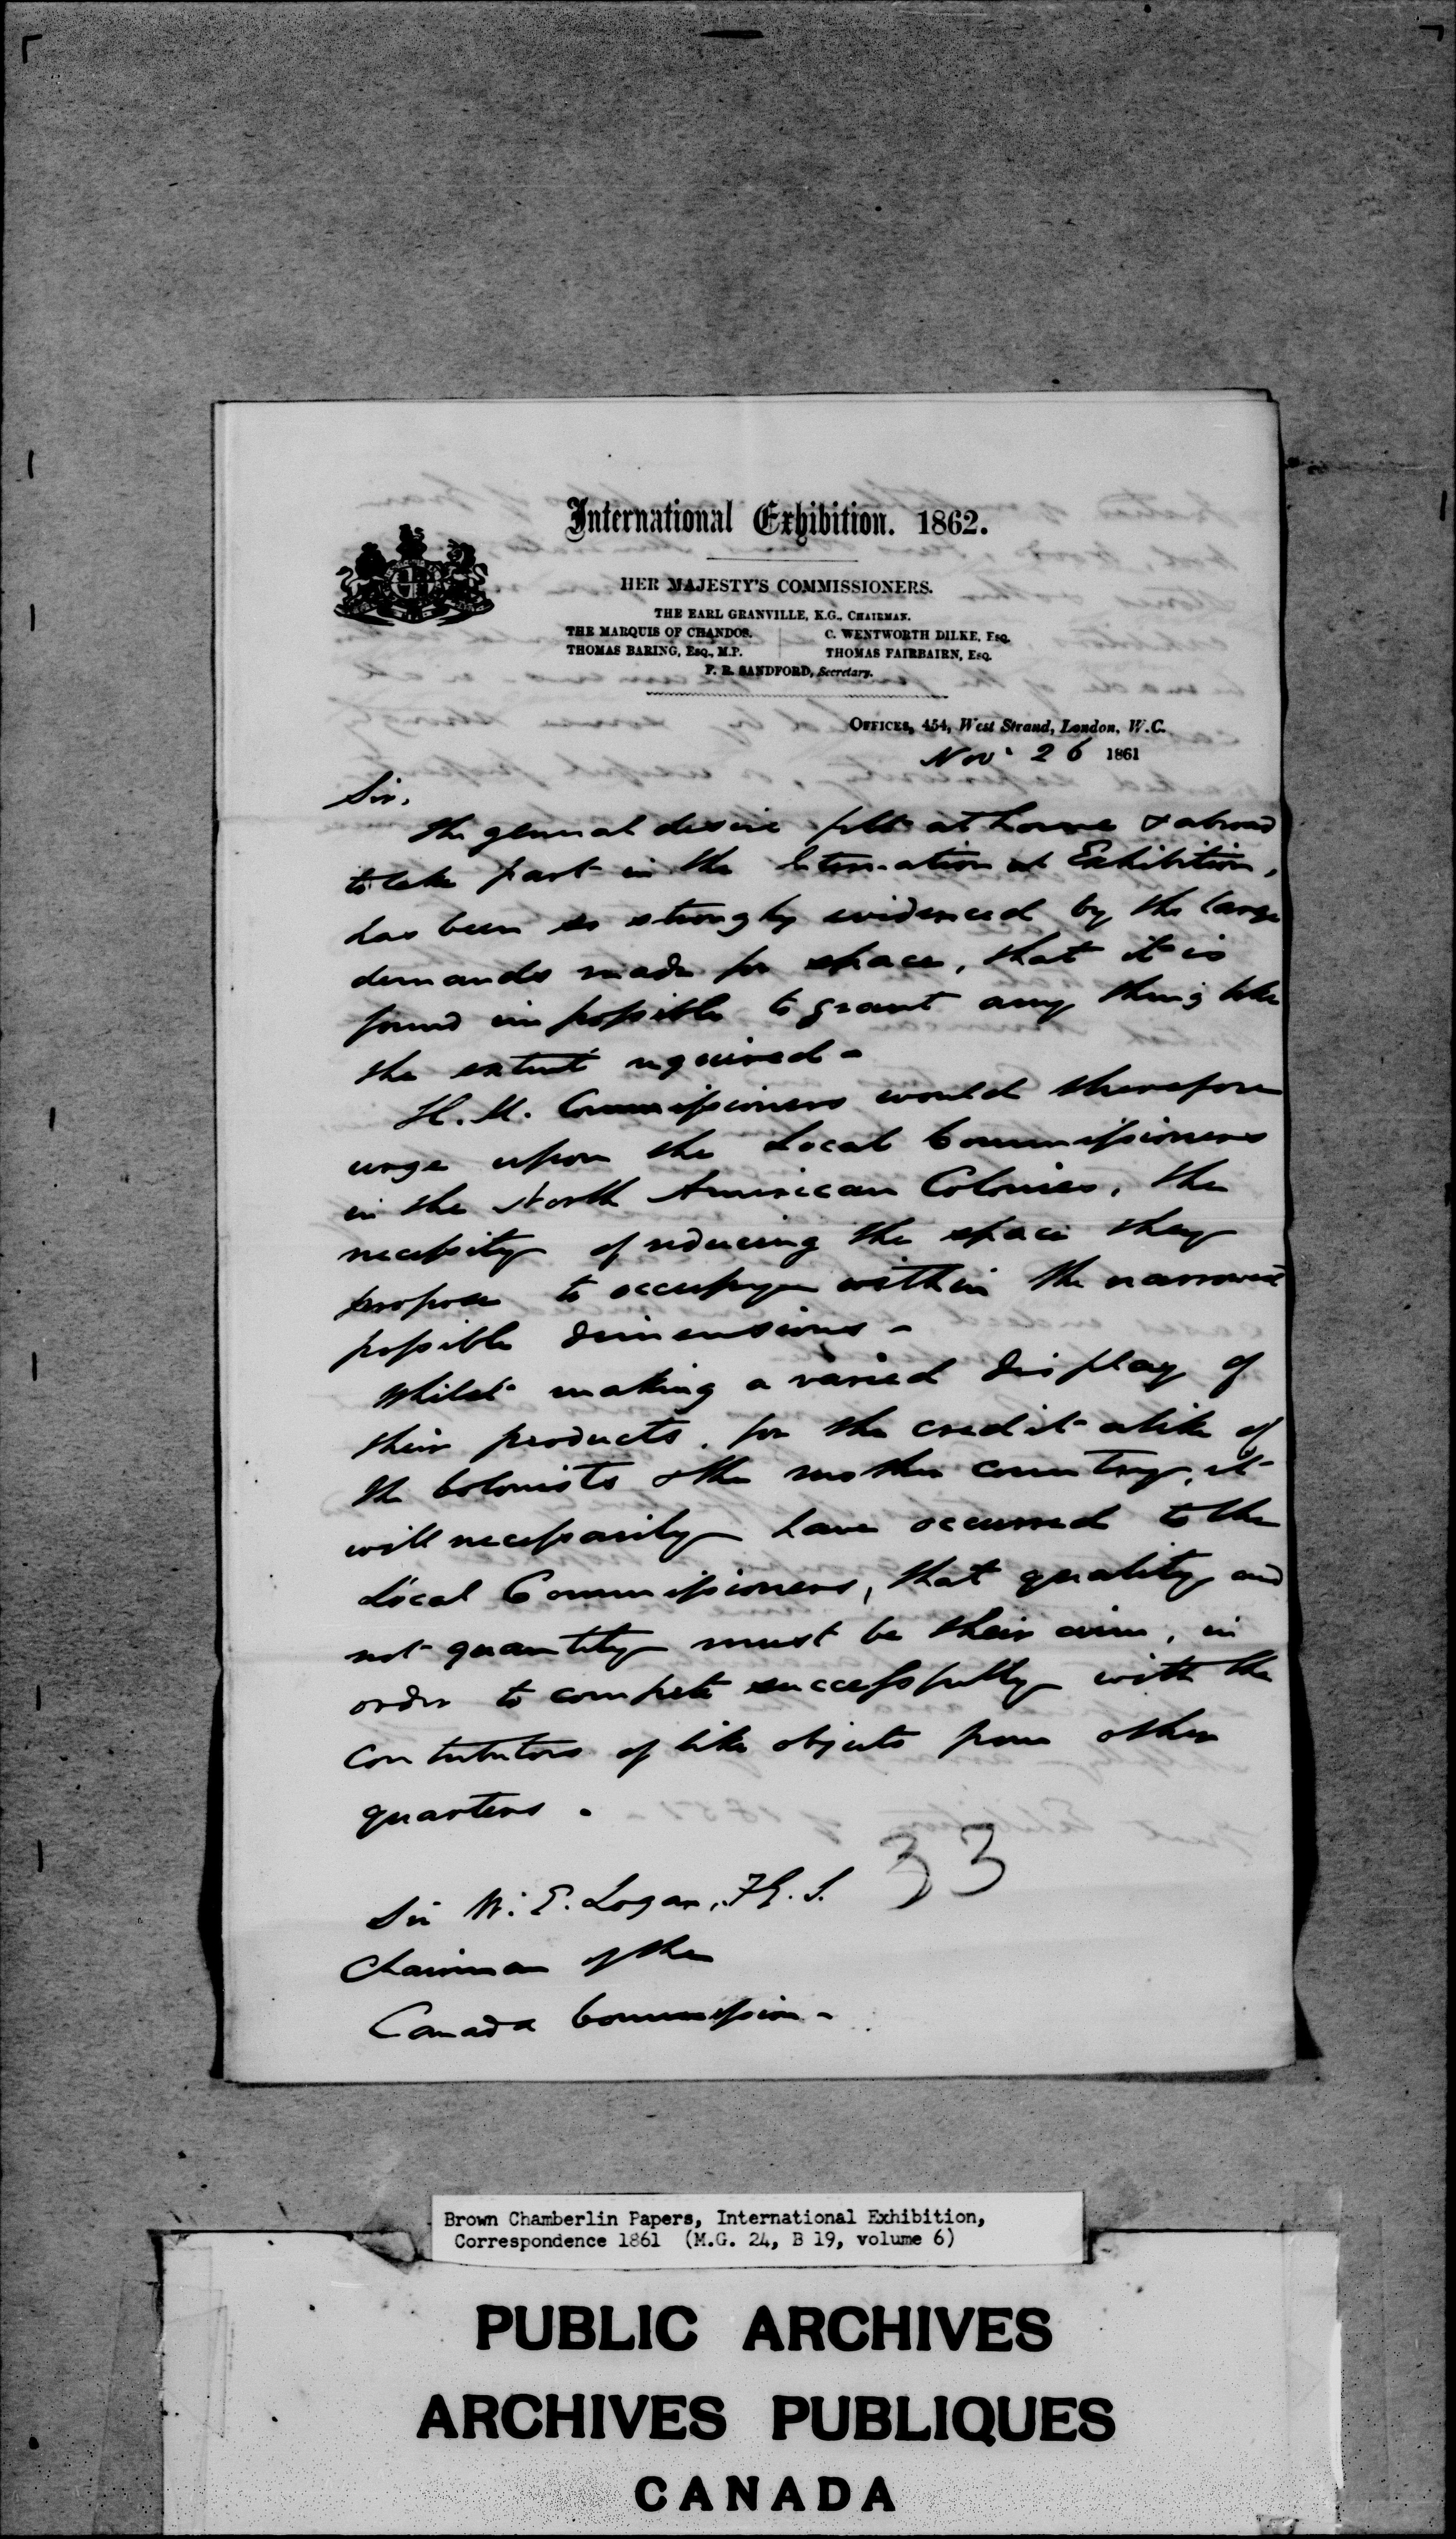 International Exhibition. 1862.
HER MAJESTY'S COMMISSIONERS.
THE EARL GRANVILLE, K.G., CHAIRMAN.
THE MARQUIS OF CHANDOS. C. WENTWORTH DILKE, Esq.
THOMAS BARING, Esq., M.P. THOMAS FAIRBAIRN, Esq.
F. R. SANDFORD, Secretary.
OFFICES, 454, West Strand, London, W.C.
Nov. 26 1861
Sir,
The general desire felt at home & abroad
to take part in the International Exhibition,
has been so strongly evidenced by the large
demands made for space, that it is
found impossible to grant any thing like
the extent required -
H. M. Commissioners would therefore
urge upon the Local Commissioners
in the North American Colonies, the
necessity of reducing the space they
propose to occupy within the narrowest
possible dimensions -
Whilst making a varied display of
their products, for the credit alike of
the Colonists & the mother country, it
will necessarily have occurred to the
Local Commissioners, that quality and
not quantity must be their aim, in
order to compete successfully with the
contributors of like objects from other
quarters.
33
Sir W. E. Logan, F.G.S.
Chairman of the
Canada Commission -
Brown Chamberlin Papers, International Exhibition,
Correspondence 1861 (M.G. 24, B 19, volume 6)
PUBLIC ARCHIVES
ARCHIVES PUBLIQUES
CANADA